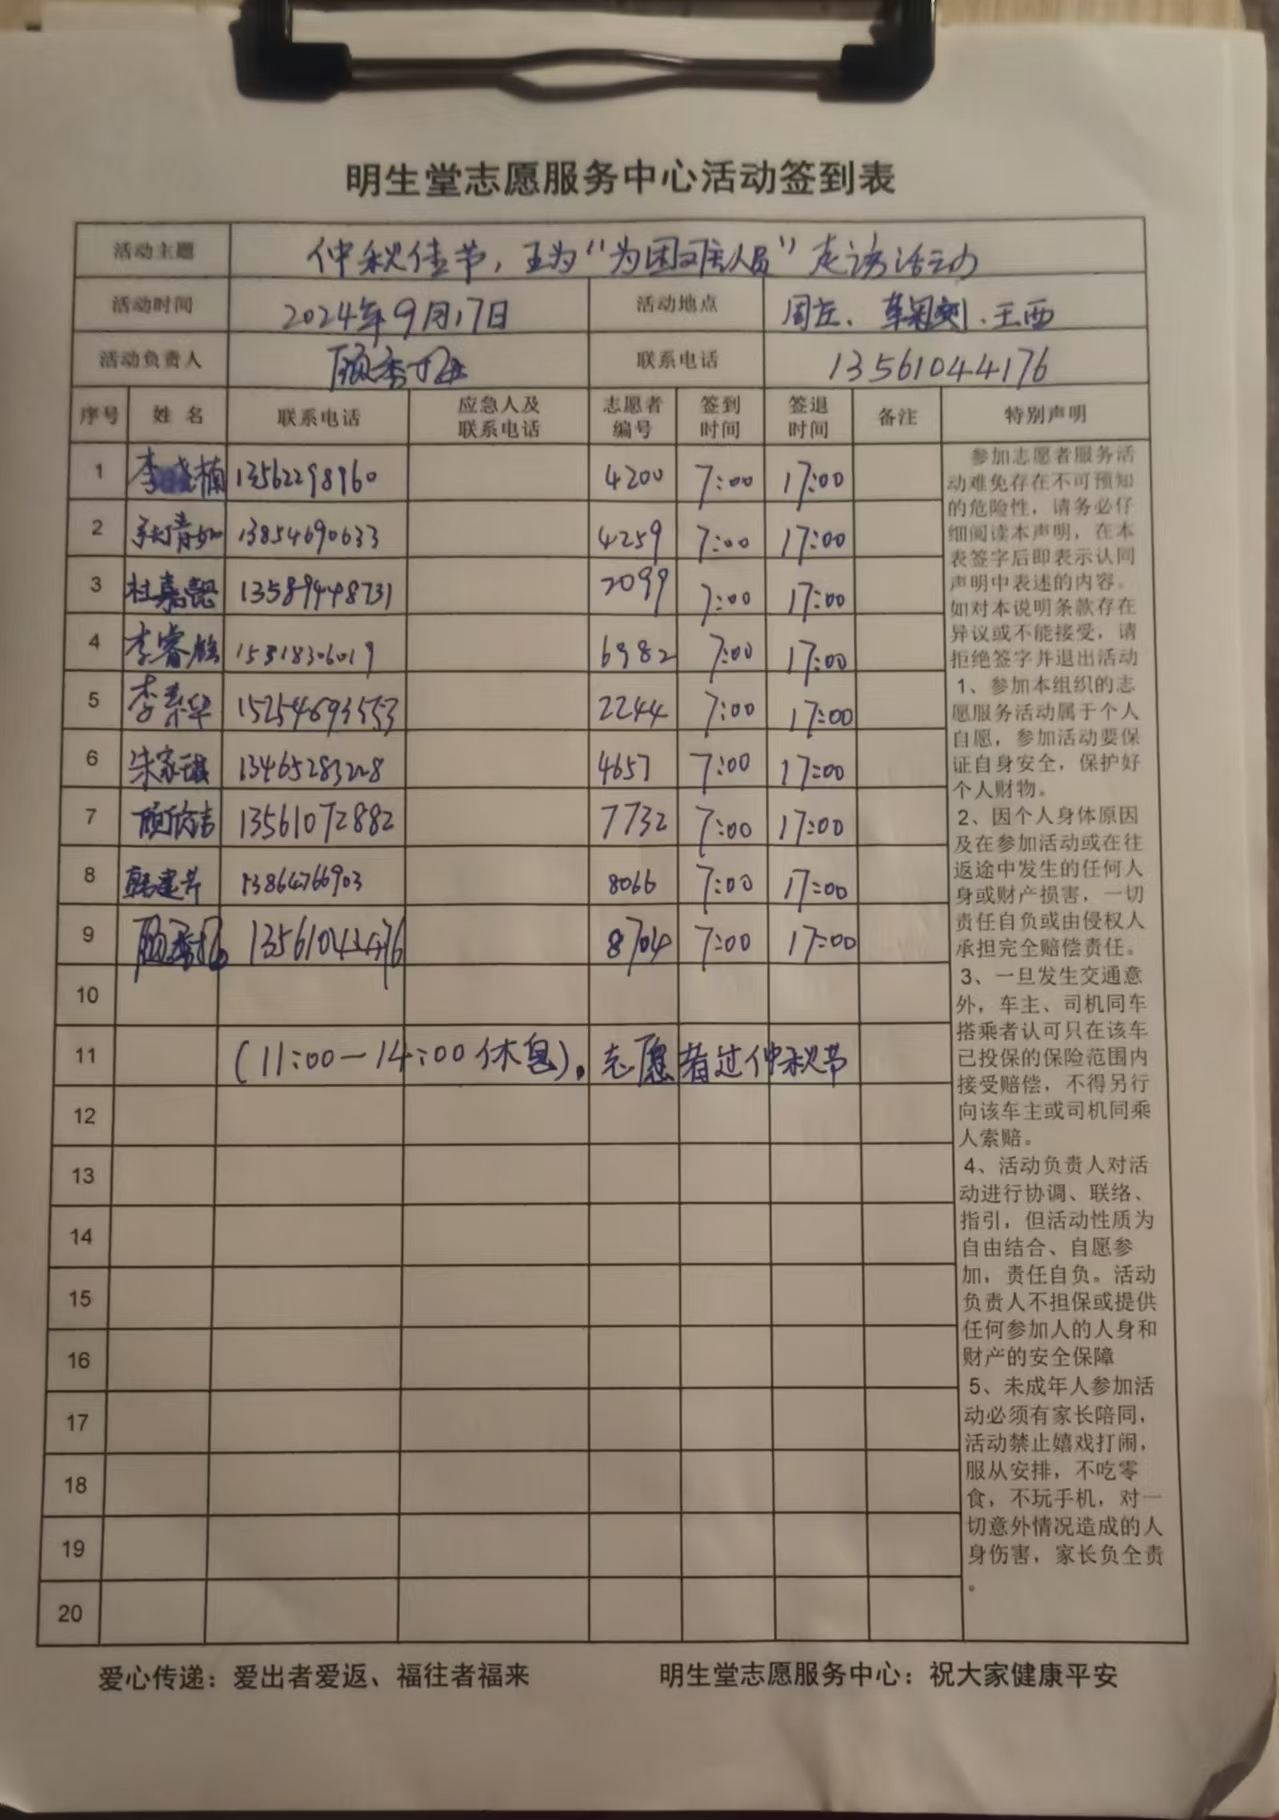 明生堂志愿服务中心活动签到表
活动主题 仲秋佳节，王为“为困难人员”走访活动
活动时间 2024年9月17日 活动地点 周庄、 、王西
活动负责人 顾秀 联系电话 13561044176
序号 姓名 联系电话 应急人及联系电话 志愿者编号 签到时间 签退时间 备注 特别声明
1 李 楠 13562298960 4200 7:00 17:00
2 张青如 13854690633 4259 7:00 17:00
3 杜嘉懿 13589448731 2099 7:00 17:00
4 李睿 15318306019 6982 7:00 17:00
5 李素华 15254693553 2244 7:00 17:00
6 朱家琪 13465283228 4657 7:00 17:00
7 顾 13561072882 7732 7:00 17:00
8 韩建芹 13864766903 8066 7:00 17:00
9 顾秀 13561044176 8704 7:00 17:00
10
11 (11:00—14:00休息)。志愿者过仲秋节
12
13
14
15
16
17
18
19
20
参加志愿者服务活
动难免存在不可预知
的危险性，请务必仔
细阅读本声明，在本
表签字后即表示认同
声明中表述的内容。
如对本说明条款存在
异议或不能接受，请
拒绝签字并退出活动
1、参加本组织的志
愿服务活动属于个人
自愿，参加活动要保
证自身安全，保护好
个人财物。
2、因个人身体原因
及在参加活动或在往
返途中发生的任何人
身或财产损害，一切
责任自负或由侵权人
承担完全赔偿责任。
3、一旦发生交通意
外，车主、司机同车
搭乘者认可只在该车
已投保的保险范围内
接受赔偿，不得另行
向该车主或司机同乘
人索赔。
4、活动负责人对活
动进行协调、联络、
指引，但活动性质为
自由结合、自愿参
加，责任自负。活动
负责人不担保或提供
任何参加人的人身和
财产的安全保障
5、未成年人参加活
动必须有家长陪同，
活动禁止嬉戏打闹，
服从安排，不吃零
食，不玩手机，对一
切意外情况造成的人
身伤害，家长负全责
。
爱心传递：爱出者爱返、福往者福来 明生堂志愿服务中心：祝大家健康平安